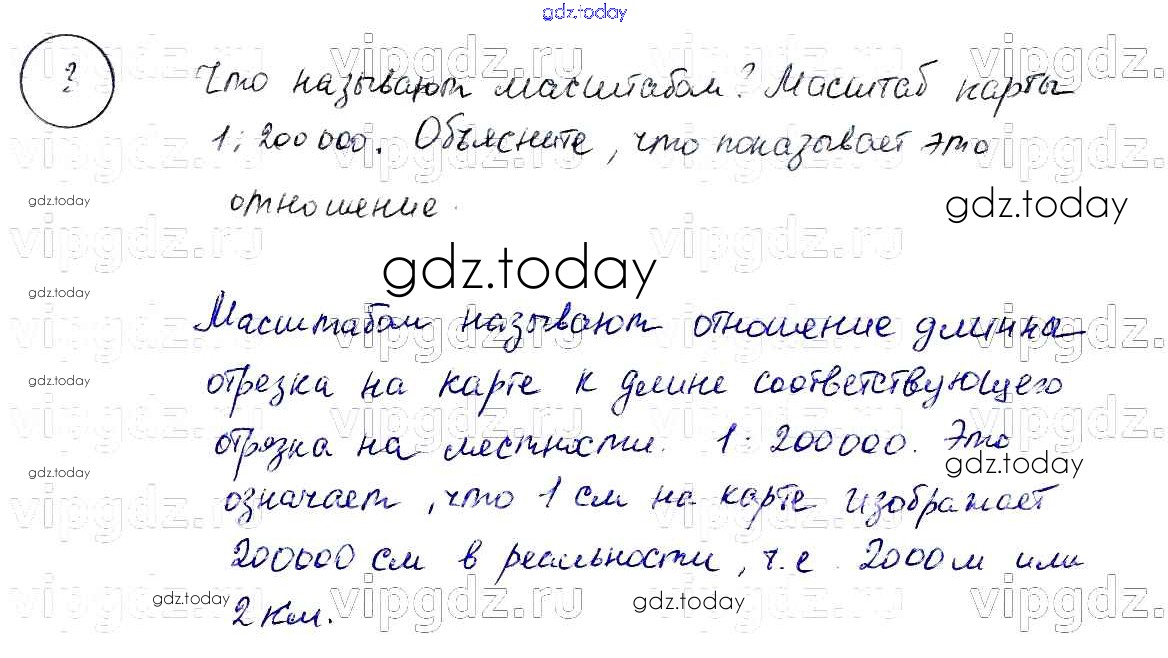 gdz.today
2
Что называют масштабом? Масштаб карты
1:200000. Объясните, что показывает это
отношение.
gdz.today
gdz.today
gdz.today
gdz.today
Масштабом называют отношение длинна
gdz.today
отрезка на карте к длине соответствующего
отрзка на местности. 1:200000. Это
gdz.today
gdz.today
означает, что 1 см на карте изображает
200000 см в реальности, т.е. 2000 м или
gdz.today
gdz.today
2 км.
vipgdz.ru